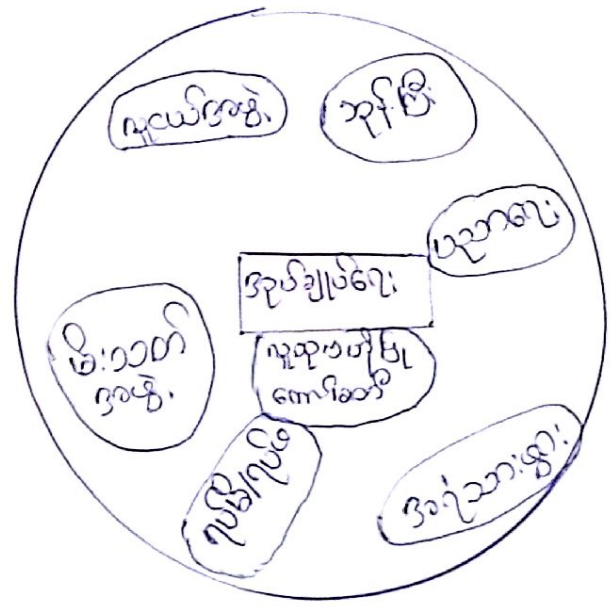 လူငယ်အဖွဲ့
ဘုန်းကြီး
ပညာရေး
အုပ်ချုပ်ရေး
မီးသတ်
အဖွဲ့
လူထုဗဟိုပြု
ကော်မတီ
ရပ်မိ/ရပ်ဖ
အရံသားဖွား